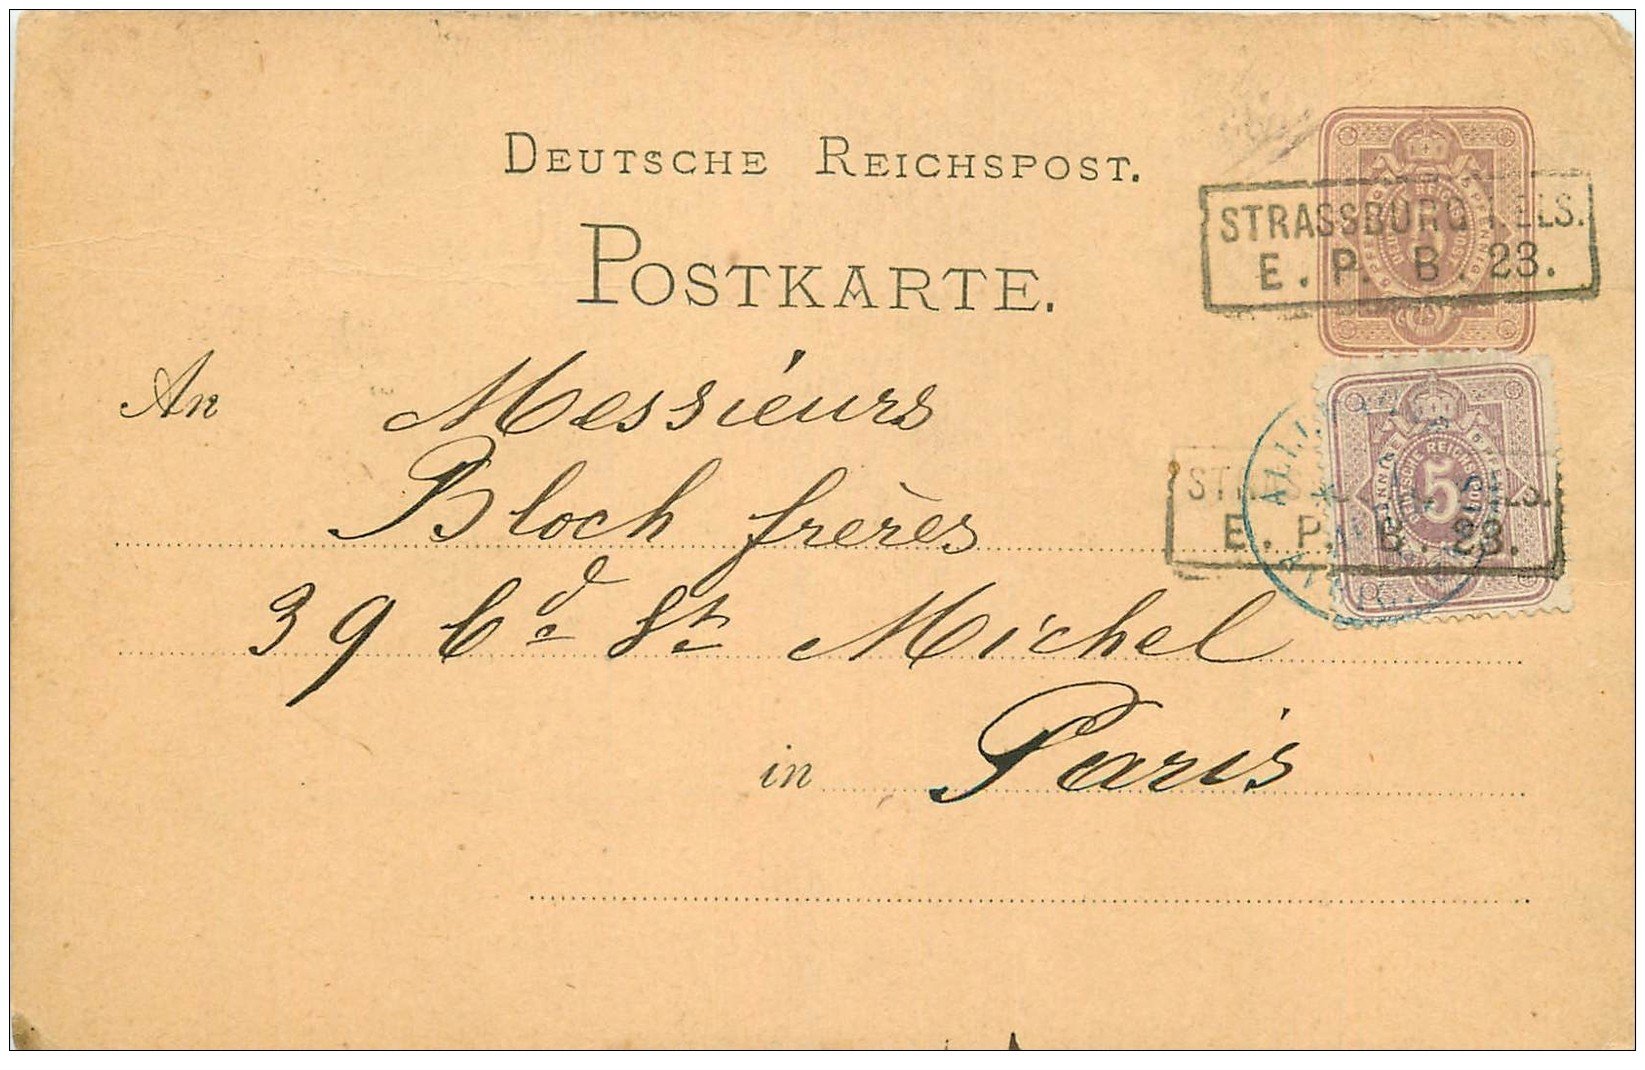 DEUTSCHE REICHSPOST.
POSTKARTE.
STRASSBURG I. ELS.
E. P. B. 23.
An Messieurs
Bloch frères
39 bd St Michel
in Paris
5
E. P. B. 23.